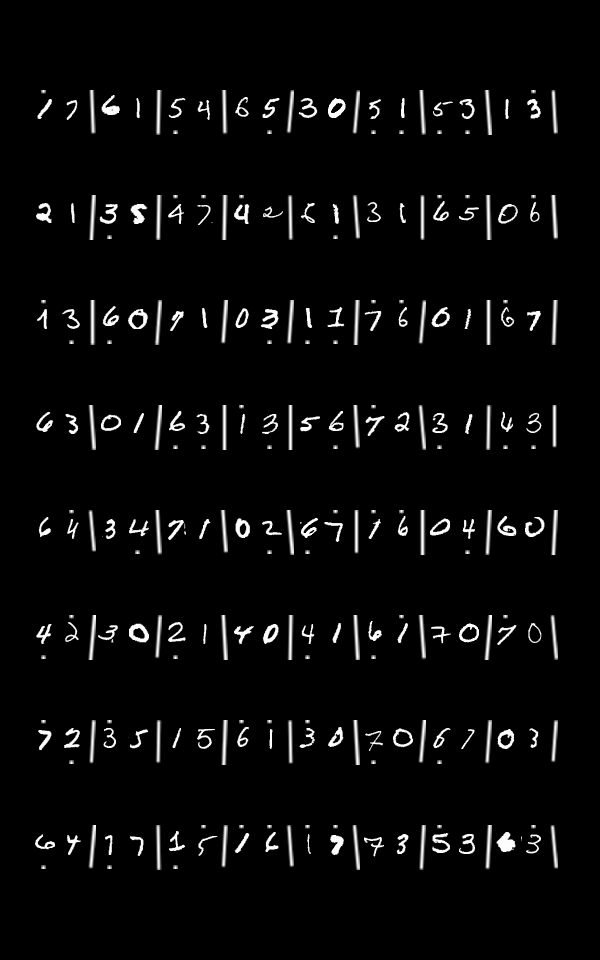 1 7 | 6 1 | 5 4 | 6 5 | 3 0 | 5 1 | 5 3 | 1 3 |
2 1 | 3 5 | 4 7 | 4 2 | 6 1 | 3 1 | 6 5 | 0 6 |
1 3 | 6 0 | 7 1 | 0 3 | 1 1 | 7 6 | 0 1 | 6 7 |
6 3 | 0 1 | 6 3 | 1 3 | 5 6 | 7 2 | 3 1 | 4 3 |
6 4 | 3 4 | 7 1 | 0 2 | 6 7 | 1 6 | 0 4 | 6 0 |
4 2 | 3 0 | 2 1 | 4 0 | 4 1 | 6 1 | 7 0 | 7 0 |
7 2 | 3 5 | 1 5 | 6 1 | 3 0 | 7 0 | 6 7 | 0 3 |
6 4 | 7 7 | 1 5 | 1 6 | 1 7 | 7 3 | 5 3 | 6 3 |